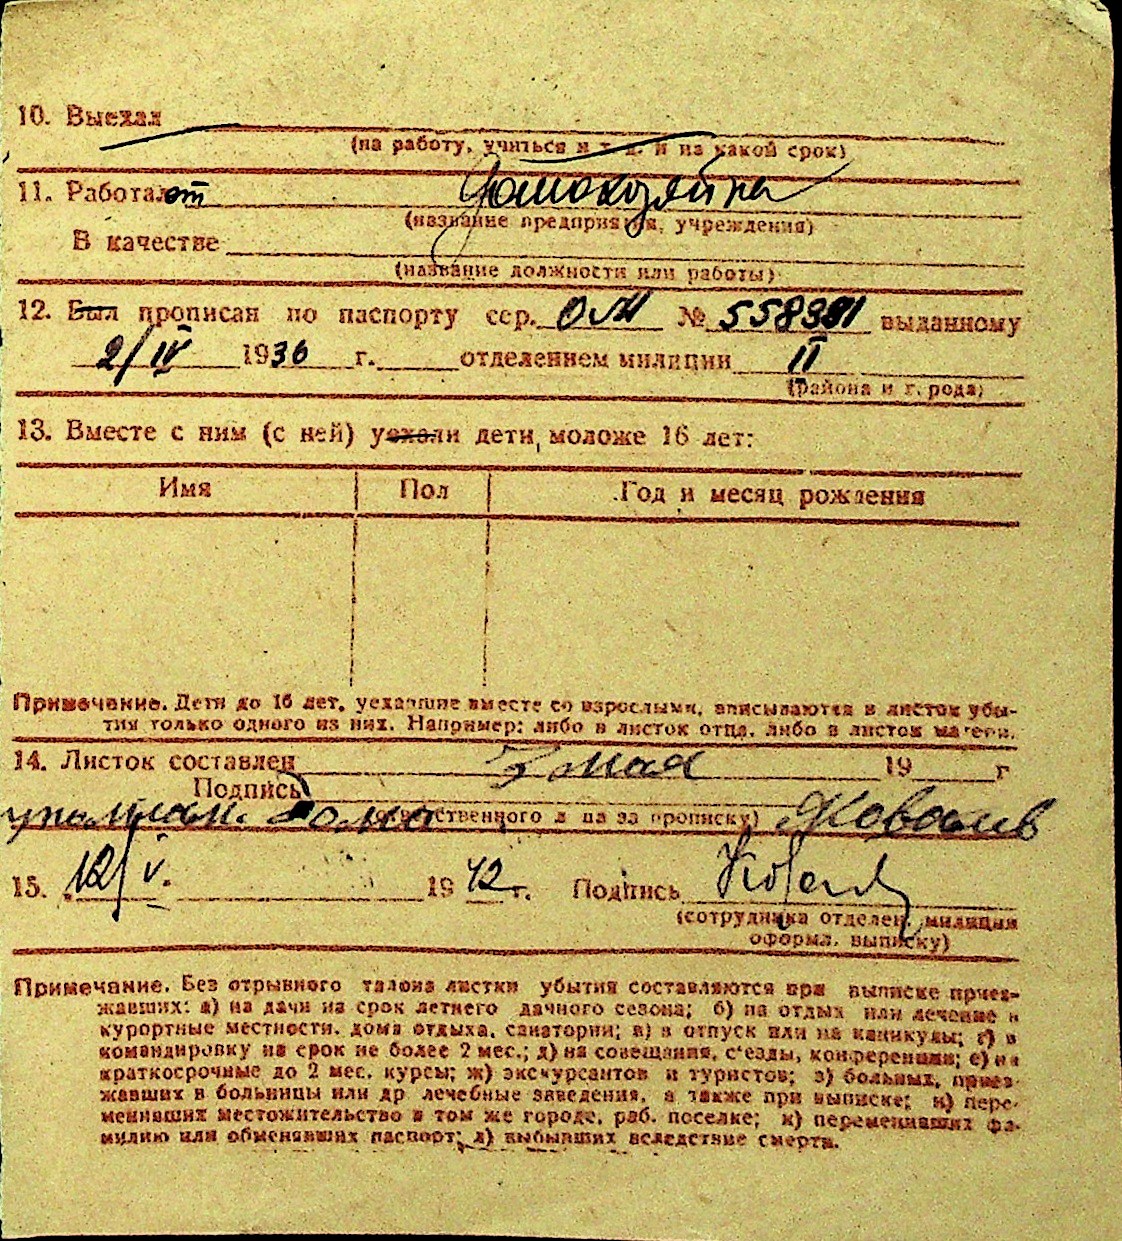 10. Выехал
(на работу, учиться и т. д. и на какой срок)
11. Работает домохозяйка
(название предприятия, учреждения)
В качестве
(название должности или работы)
12. Был прописан по паспорту сер. ОМ № 558391 выданному
2/IV 1936 г. отделением милиции II
(района и города)
13. Вместе с ним (с ней) уехали дети моложе 16 лет:
Имя Пол Год и месяц рождения
Примечание. Дети до 16 лет, уехавшие вместе со взрослыми, вписываются в листок убы-
тия только одного из них. Например: либо в листок отца, либо в листок матери.
14. Листок составлен 7 мая 19 г
Подпись
дома (ответственного лица за прописку)
15. 12/V. 1942 г. Подпись
(сотрудника отделен. милиции
оформл. выписку)
Примечание. Без отрывного талона листки убытия составляются при выписке приез-
жавших: а) на дачи на срок летнего дачного сезона; б) на отдых или лечение в
курортные местности, дома отдыха, санатории; в) в отпуск или на каникулы; г) в
командировку на срок не более 2 мес.; д) на совещания, съезды, конференции; е) на
краткосрочные до 2 мес. курсы; ж) экскурсантов и туристов; з) больных, приез-
жавших в больницы или др лечебные заведения, а также при выписке; и) пере-
менивших местожительство в том же городе, раб. поселке; к) переменивших фа-
милию или обменявших паспорт; л) выбывших вследствие смерти.